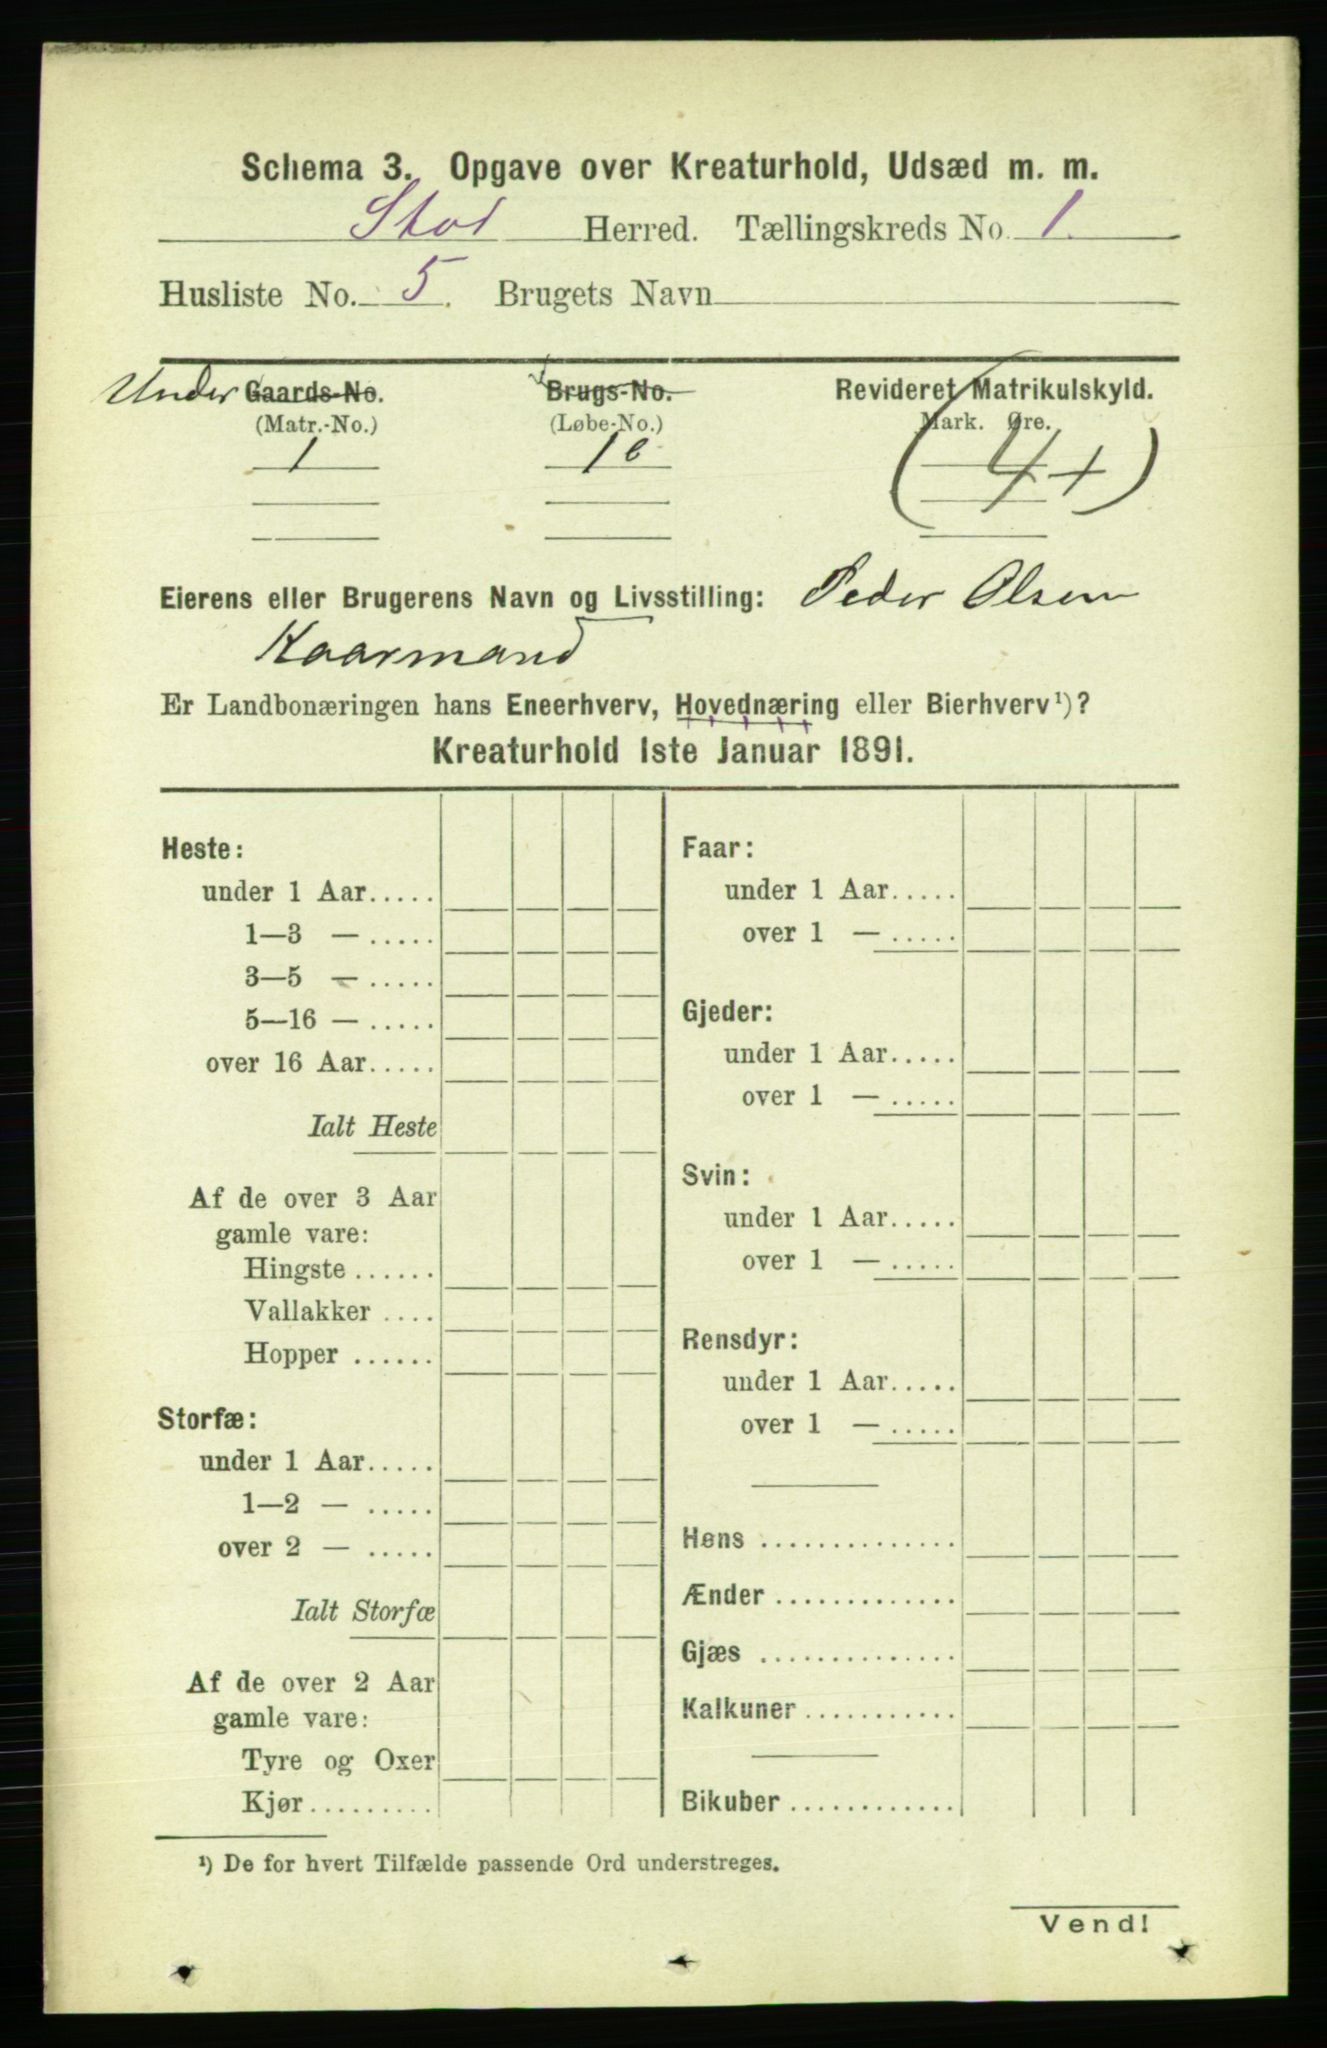 Schema 3. Opgave over Kreaturhold, Udsæd m. m.
Stod Herred. Tællingskreds No. 1.
Husliste No. 5. Brugets Navn
Under Gaards-No. Brugs-No. Revideret Matrikulskyld.
(Matr.-No.) (Løbe-No.) Mark. Øre.
1 1 (4+)
Eierens eller Brugerens Navn og Livsstilling: Peder Olsen
Kaarmand
Er Landbonæringen hans Eneerhverv, Hovednæring eller Bierhverv¹)?
Kreaturhold 1ste Januar 1891.
Heste:
under 1 Aar.....
1—3 — .....
3—5 — .....
5—16 — .....
over 16 Aar.....
Ialt Heste
Af de over 3 Aar
gamle vare:
Hingste ......
Vallakker ....
Hopper ......
Storfæ:
under 1 Aar.....
1—2 — .....
over 2 — .....
Ialt Storfæ
Af de over 2 Aar
gamle vare:
Tyre og Oxer
Kjør.........
Faar:
under 1 Aar.....
over 1 — .....
Gjeder:
under 1 Aar.....
over 1 — .....
Svin:
under 1 Aar.....
over 1 — .....
Rensdyr:
under 1 Aar.....
over 1 — .....
Høns ..............
Ænder .............
Gjæs ..............
Kalkuner ...........
Bikuber ............
¹) De for hvert Tilfælde passende Ord understreges.
Vend!